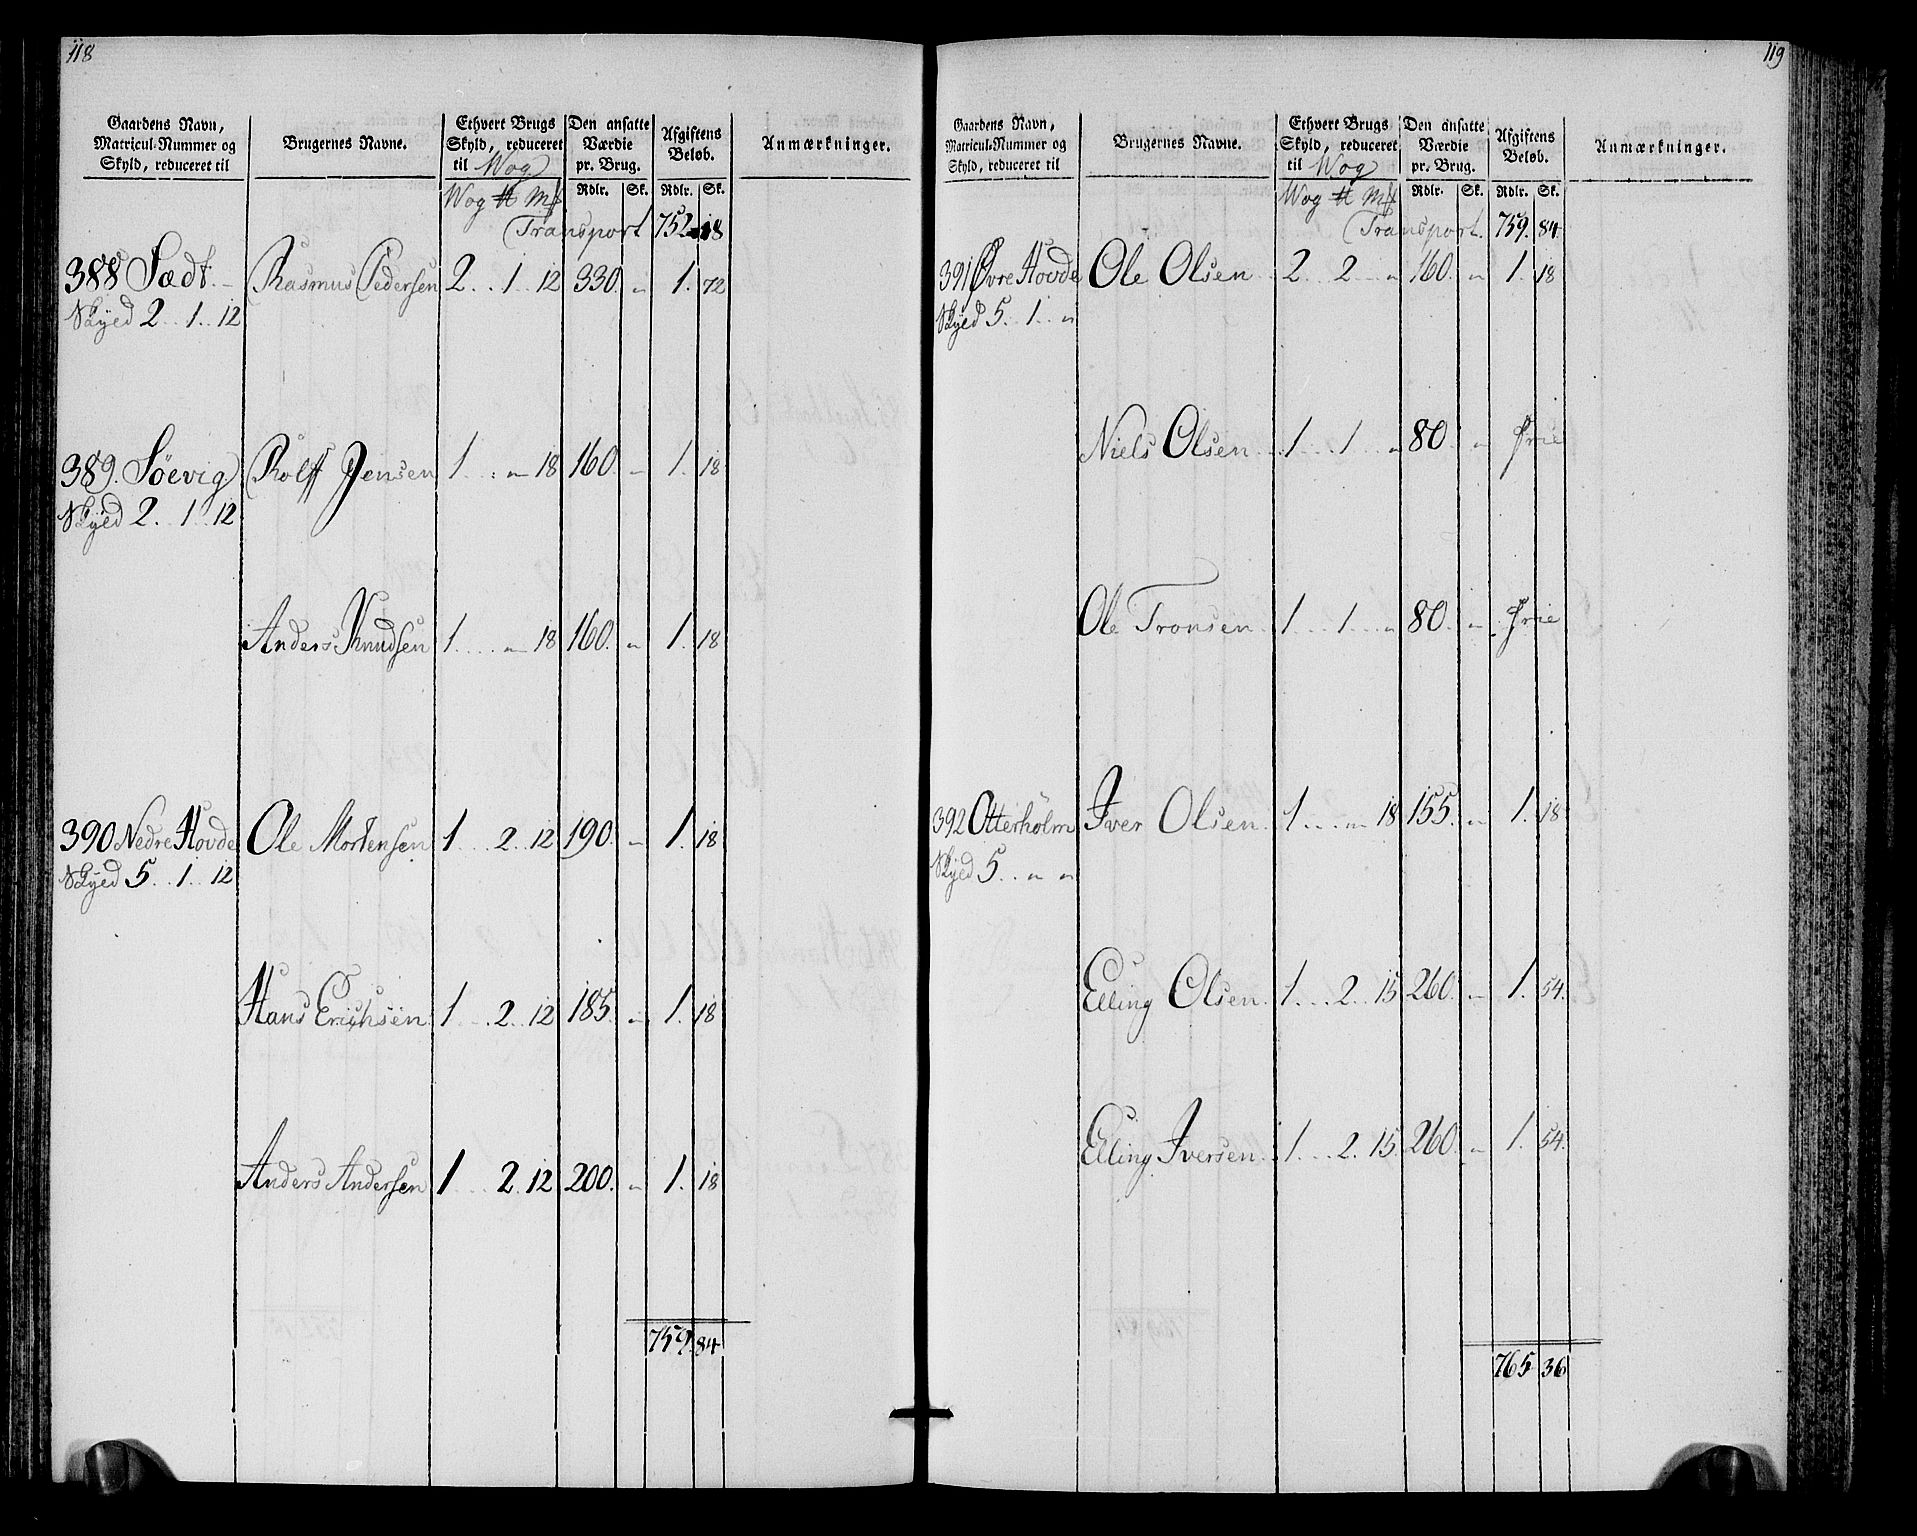 118
Gaardens Navn, Matricul-Nummer og Skyld, reduceret til
Brugernes Navne.
Ethvert Brugs Skyld, reduceret til Wog
Den ansatte Værdie pr. Brug.
Afgiftens Beløb.
Anmærkninger.
Wog ℔ Mk Rdlr. Sk. Rdlr. Sk.
Transport 752. 18
388 Sædt. Rasmus Pedersen 2 . . 1 . 12 330. " 1. 72
Skyld 2 . . 1 . . 12
389. Söevig Rolff Jensen 1 . : " 18 160. " 1. 18
Skyld 2 . . 1 . . 12
Anders Knudsen 1 . . . . " 18 160. " 1. 18
390 Nedre Hovde Ole Mortensen 1 . . 2. 12 190. " 1. 18
Skyld 5 . . 1 . . 12
Hans Erichsen 1 . . . 2 . . 12 185. " 1. 18
Anders Andersen 1 . . . 2. 12 200. " 1. 18
759. 84
119
Gaardens Navn, Matricul-Nummer og Skyld, reduceret til
Brugernes Navne.
Ethvert Brugs Skyld, reduceret til Wog
Den ansatte Værdie pr. Brug.
Afgiftens Beløb.
Anmærkninger.
Wog ℔ Mk Rdlr. Sk. Rdlr. Sk.
Transport. 759. 84
391 Øvre Hovde Ole Olsen 2 . . 2 . . " 160. " 1. 18
Skyld 5 . . 1 . . "
Niels Olsen 1 . . . 1 . . " 80. " Frie
Ole Tronsen 1 . . . 1 . . " 80. " Frie
392 Otterholm Iver Olsen 1 . . . " 18 155. " 1. 18
Skyld 5 . . " "
Elling Olsen 1 . . . 2 . . 15 260. " 1. 54.
Elling Iversen 1 . . . 2. 15 260. " 1. 54.
765 36